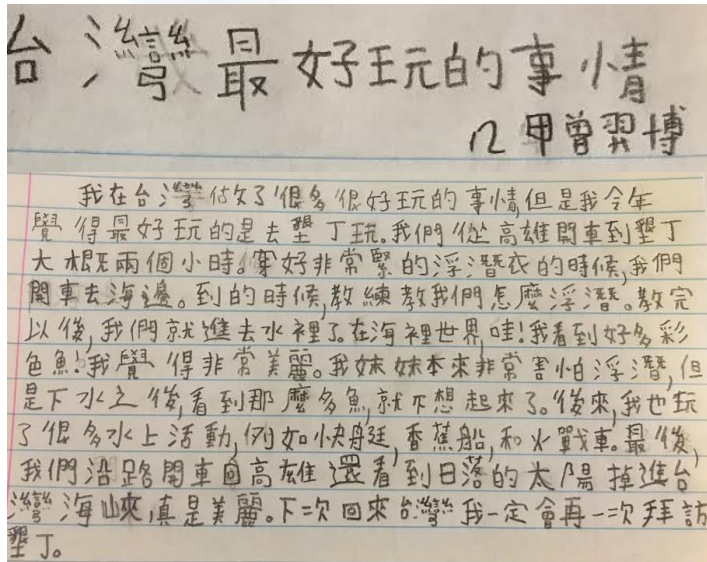 台灣最好玩的事情
12甲曾羿博
我在台灣做了很多很好玩的事情,但是我今年
覺得最好玩的是去墾丁玩。我們從高雄開車到墾丁
大概兩個小時。穿好非常緊的浮潛衣的時候,我們
開車去海邊。到的時候,教練教我們怎麼浮潛。教完
以後,我們就進去水裡了。在海裡世界,哇!我看到好多彩
色魚!我覺得非常美麗。我妹妹本來非常害怕浮潛,但
是下水之後,看到那麼多魚,就不想起來了。後來,我也玩
了很多水上活動,例如快艇,香蕉船,和火戰車。最後,
我們沿路開車回高雄還看到日落的太陽掉進台
灣海峽,真是美麗。下次回來台灣我一定會再一次拜訪
墾丁。